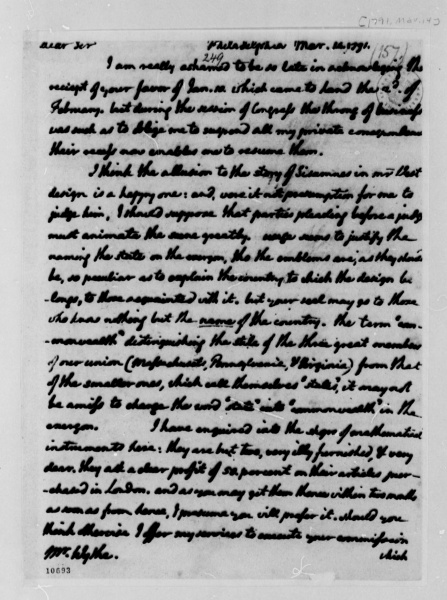 [1791. Mar. 22]
(157)
249
Dear Sir Philadelphia Mar. 22. 1791.
I am really ashamed to be so late in acknowledging the
receipt of your favor of Jan. 10. which came to hand the 2d. of
February. but during the session of Congress the throng of business
was such as to oblige me to suspend all my private correspondence
their recess now enables me to resume them.
I think the allusion to the story of Sisamnes in mr West's
design is a happy one: and, were it not presumption for me to
judge him, I should suppose that parties pleading before a judge
must animate the scene greatly. usage seems to justify the
naming the state on the exergon, tho the emblems are, as they should
be, so peculiar as to explain the country to which the design be-
-longs, to those acquainted with it. but your seal may go to those
who know nothing but the name of the country. the term "com-
-monwealth" distinguishing the stile of the three great members
of our union (Massachusets, Pennsylvania, & Virginia) from that
of the smaller ones, which call themselves "states", it may not
be amiss to change the word "state" into "commonwealth" in the
exergon. I have enquired into the shops of mathematical
instruments here: they are but two, very illy furnished, & very
dear. they ask a clear profit of 50. percent on their articles pur-
-chased in London. and as you may get them thence within two months
as soon as from hence, I presume you will prefer it. should you
think otherwise I offer my services to execute your commission
Mr. Wythe. which
10693